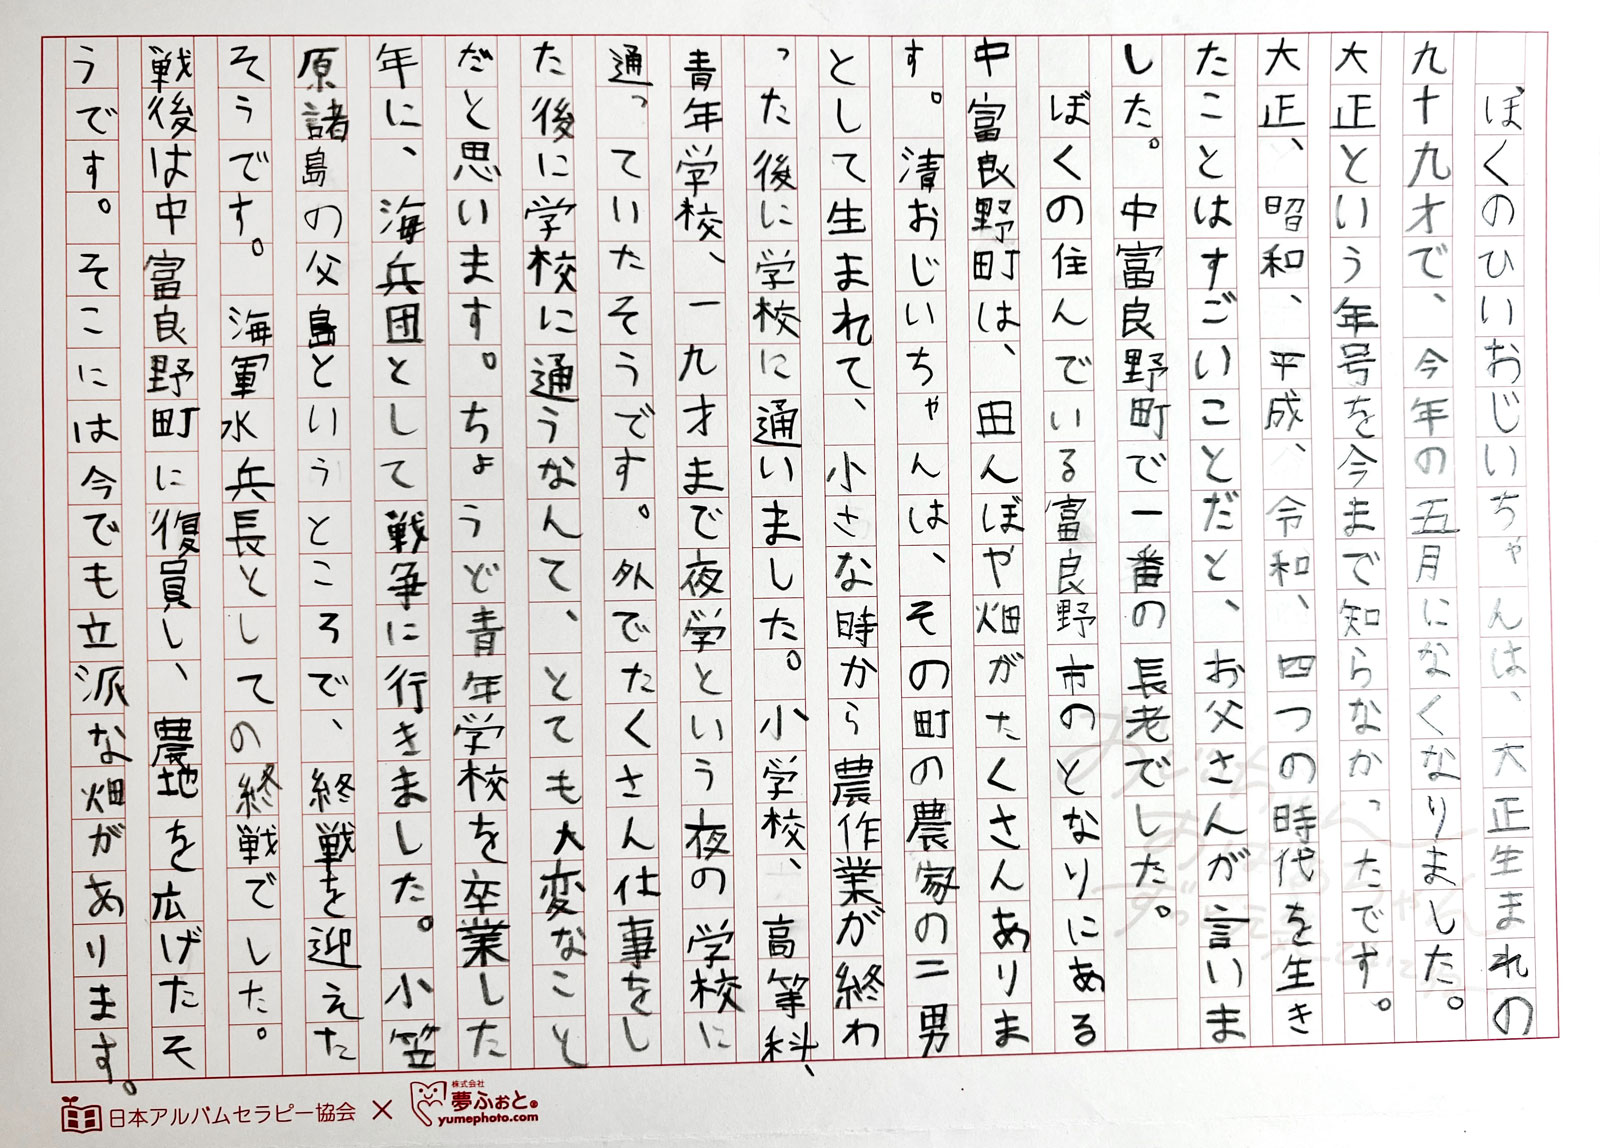 ぼくのひいおじいちゃんは、大正生まれの
九十九才で、今年の五月になくなりました。
大正という年号を今まで知らなかったです。
大正、昭和、平成、令和、四つの時代を生き
たことはすごいことだと、お父さんが言いま
した。中富良野町で一番の長老でした。
ぼくの住んでいる富良野市のとなりにある
中富良野町は、田んぼや畑がたくさんありま
す。清おじいちゃんは、その町の農家の二男
として生まれて、小さな時から農作業が終わ
った後に学校に通いました。小学校、高等科、
青年学校、一九才まで夜学という夜の学校に
通っていたそうです。外でたくさん仕事をし
た後に学校に通うなんて、とても大変なこと
だと思います。ちょうど青年学校を卒業した
年に、海兵団として戦争に行きました。小笠
原諸島の父島というところで、終戦を迎えた
そうです。海軍水兵長としての終戦でした。
戦後は中富良野町に復員し、農地を広げたそ
うです。そこには今でも立派な畑があります。
日本アルバムセラピー協会 × 株式会社 夢ふぉと。 yumephoto.com